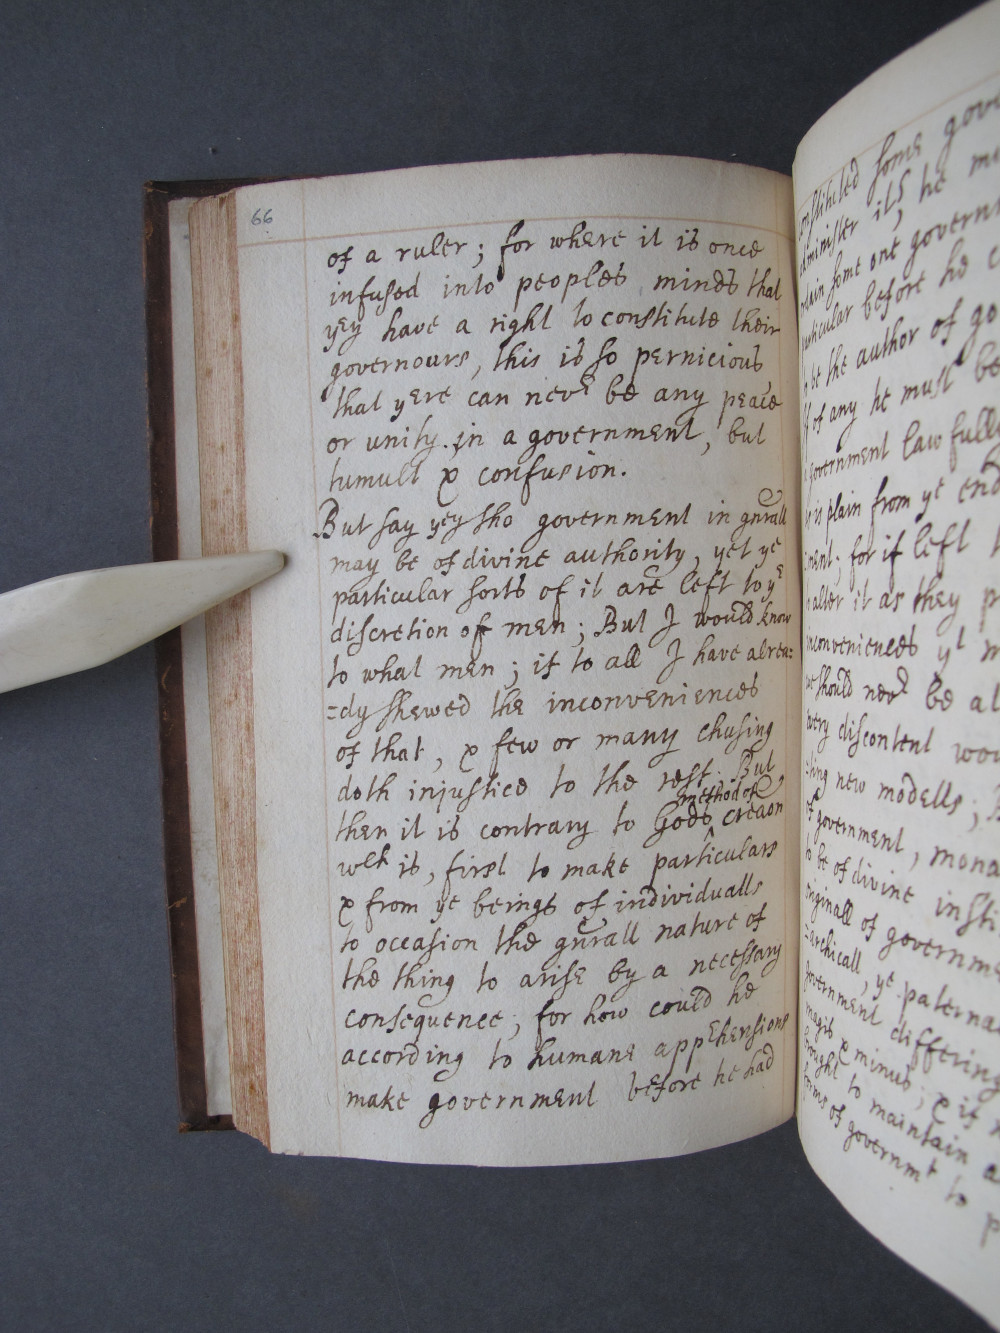 66
of a ruler; for where it is once
infused into peoples minds that
yey have a right to constitute their
governours, this is so pernicious
that yere can nevr be any peace
or unity in a government, but
tumult & confusion.
But say yey tho government in gnrall
may be of divine authority, yet ye
particular sorts of it are left to ye
discretion of men; But I would know
to what men; if to all I have alrea=
=dy shewed the inconveniences
of that, & few or many chusing
doth injustice to the rest. But
method of
then it is contrary to Gods creaon
wch is, first to make particulars
& from ye beings of individualls
to occasion the gnrall nature of
the thing to arise by a necessary
consequence; for how could he
according to humane apprehensions
make government before he had
constituted some
administer its, he
some one govern
particular before he
be the author of go
of any he must be
government lawfully
is plain from ye end
for if left
alter it as they
inconveniences yt
we should nevr be al
every discontent wou
new modells;
of government, mona
to be of divine insti
originall of governme
=archicall, ye paterna
government differing
magis & minus; & if
brought to maintain a
forms of governmt to p